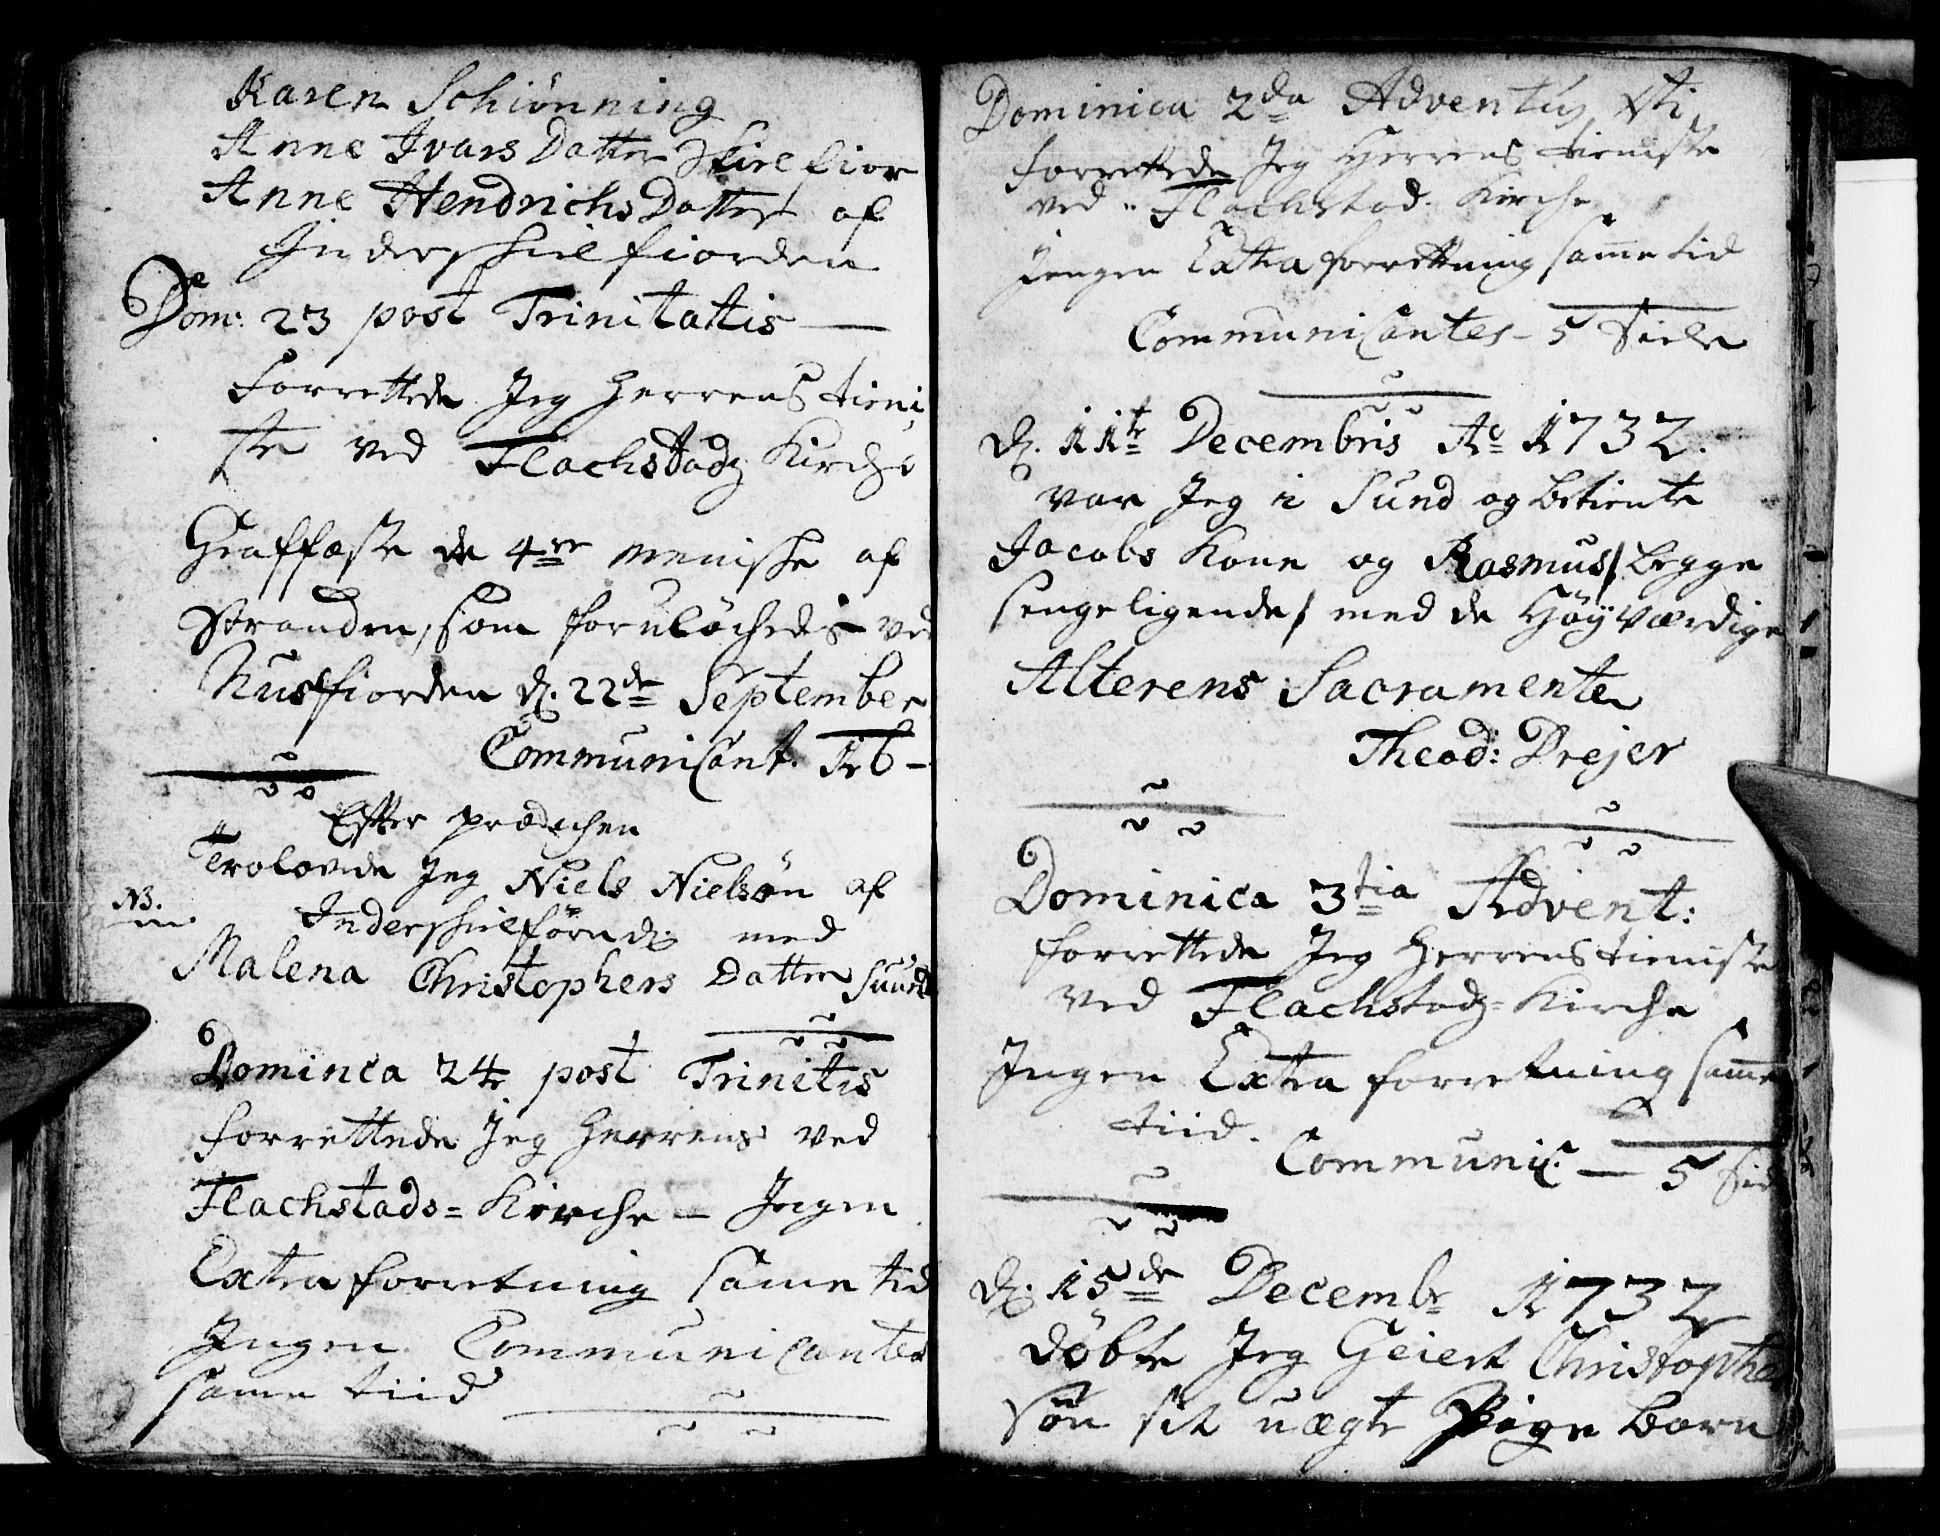 Karen Schiönning
Anne Ivars Datter Skielfior
Anne Hendrichs Datter af
Inderskielfiorden
Dom: 23 post Trinitatis
forrettede Jeg Herrens tieni
ste ved Flachstadz Kirche
Graffæste de 4re meniske af
Stranden, som foruløchedis ved
Nusfiorden d. 22de September
Communicant. 16 -
Efter prædichen
Trolovede Jeg Niels Nielsøn af
NB.
Inderskielfiord. med
Malena Christophers Datter Sund
Dominca 24 post Trinitis
forrettede Jeg Herrens ved
Flachstads = Kirche - Ingen
Extra forretning same tid
Ingen Communicantes
same tiid
Dominica 2da Adventus
forrettede Jeg Herrens tieniste
ved Flachstad. Kirche
Jengen Extra forrettning same tid
Communicantes - 5 Siele
d. 11te Decembris Ao 1732.
var Jeg i Sund og betiente
Jacobs Kone og Rasmus / begge
sengeligende / med de Høyværdige
Alterens Sacramente
Theod: Drejer
Dominica 3tia Advent:
forrettede Jeg Herrens tieniste
ved Flachstadz = Kirche
Ingen Extra forretning samme
tiid.
Communic. - 5 Siel
d. 15de Decembr 1732
døbte Jeg Geiert Christophers
søn sit uægte Pige barn